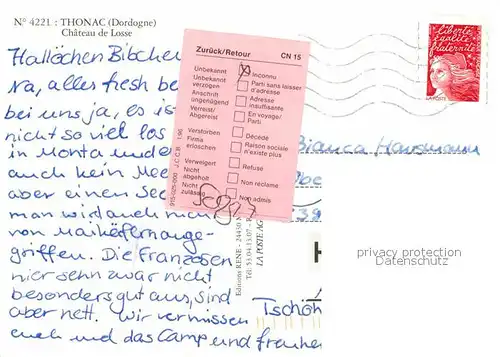 N° 4221 : THONAC (Dordogne)
Château de Losse
Hallöchen Bibche
na, alles fresh be
bei uns ja, es is
nicht so viel los
in Monta und
auch kein Mee
aber einen See
man wird auch nich
von Maikäfern ange-
griffen. Die Franzosen
hier sehn zwar nicht
besonders gut aus, sind
aber nett. Wir vermissen
euch und das Camp und
Zurück/Retour CN 15
Unbekannt Inconnu
Unbekannt verzogen Parti sans laisser d'adresse
Anschrift ungenügend Adresse insuffisante
Verreist/ Abgereist En voyage/ Parti
Verstorben Décédé
Firma erloschen Raison sociale n'existe plus
Verweigert Refuse
Nicht abgeholt Non réclame
Nicht zulässig Non admis
915-025-000 J.C.C.B. 1.96
liberté
égalité
fraternité
LA POSTE
Bianca
39
Editions RENE - 24430
Tél. 53.04.13.07
LA POSTE
Tschöh
privacy protection
Datenschutz